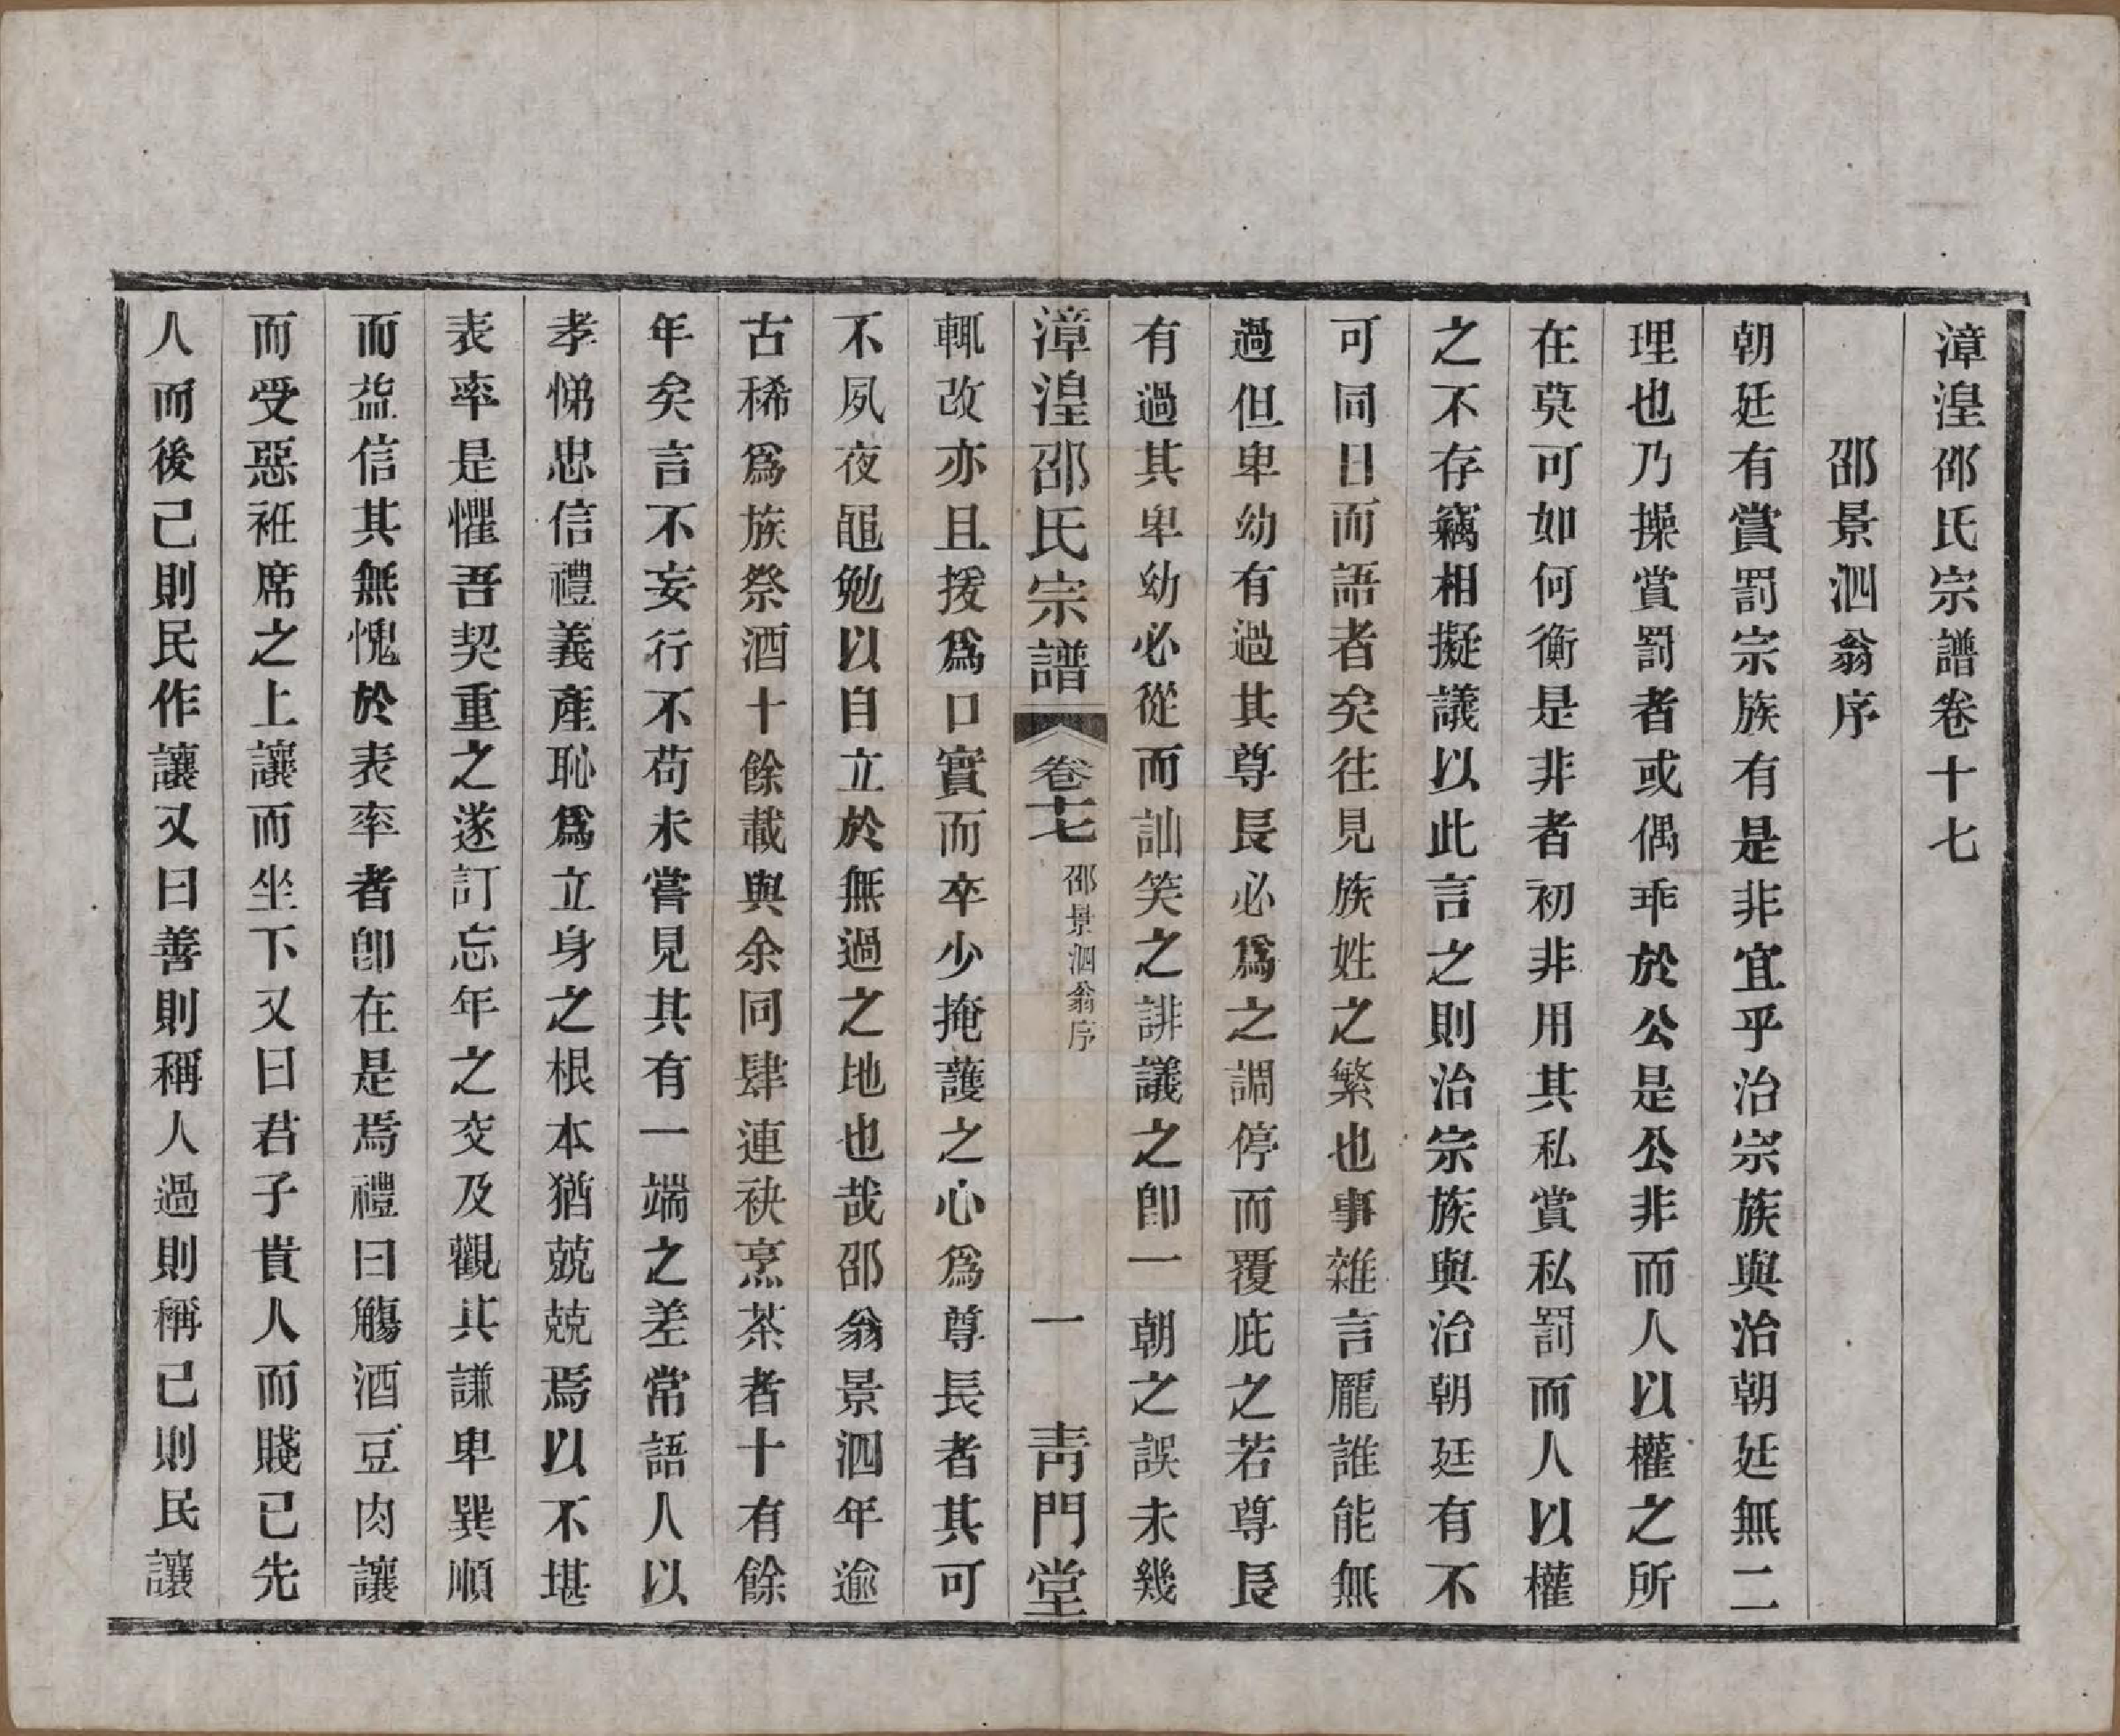 漳湟邵氏宗譜卷十七
邵景泗翁序
朝廷有賞罰宗族有是非宜乎治宗族與治朝廷無二
理也乃操賞罰者或偶乖於公是公非而人以權之所
在莫可如何衡是非者初非用其私賞私罰而人以權
之不存竊相擬議以此言之則治宗族與治朝廷有不
可同日而語者矣往見族姓之繁也事雜言龎誰能無
過但卑幼有過其尊長必爲之調停而覆庇之若尊長
有過其卑幼必從而訕笑之誹議之卽一朝之誤未幾
漳湟邵氏宗譜 卷十七 邵景泗翁序 一 靑門堂
輒改亦且援爲口實而卒少掩護之心爲尊長者其可
不夙夜黽勉以自立於無過之地也哉邵翁景泗年逾
古稀爲族祭酒十餘載與余同肆連袂烹茶者十有餘
年矣言不妄行不苟未嘗見其有一端之差常語人以
孝悌忠信禮義產恥爲立身之根本猶兢兢焉以不堪
表率是懼吾契重之遂訂忘年之交及觀其謙卑巽順
而益信其無愧於表率者卽在是焉禮曰觴酒豆肉讓
而受惡袵席之上讓而坐下又曰君子貴人而賤已先
人而後己則民作讓又曰善則稱人過則稱己則民讓